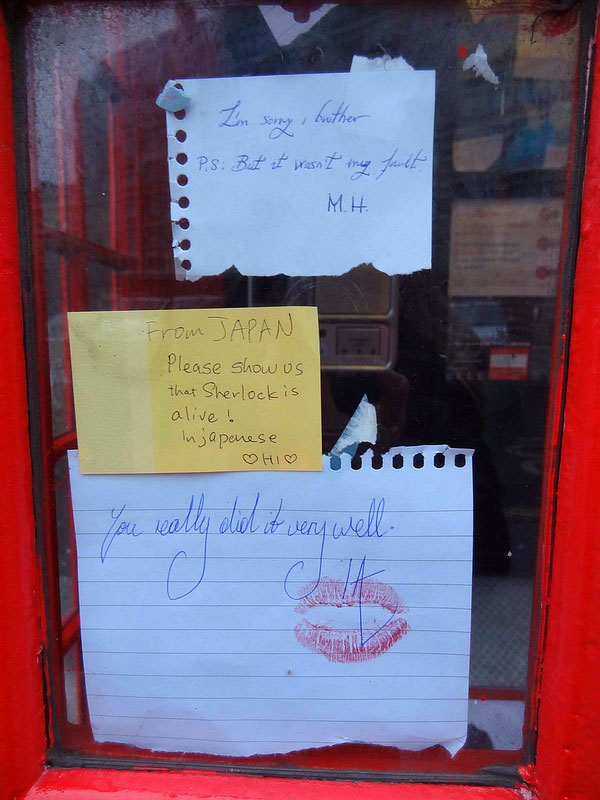 I'm sorry, brother
P.S. But it wasn't my fault.
M.H.
From JAPAN
Please show us
that Sherlock is
alive!
In japenese
♡HI♡
You really did it very well.
IA